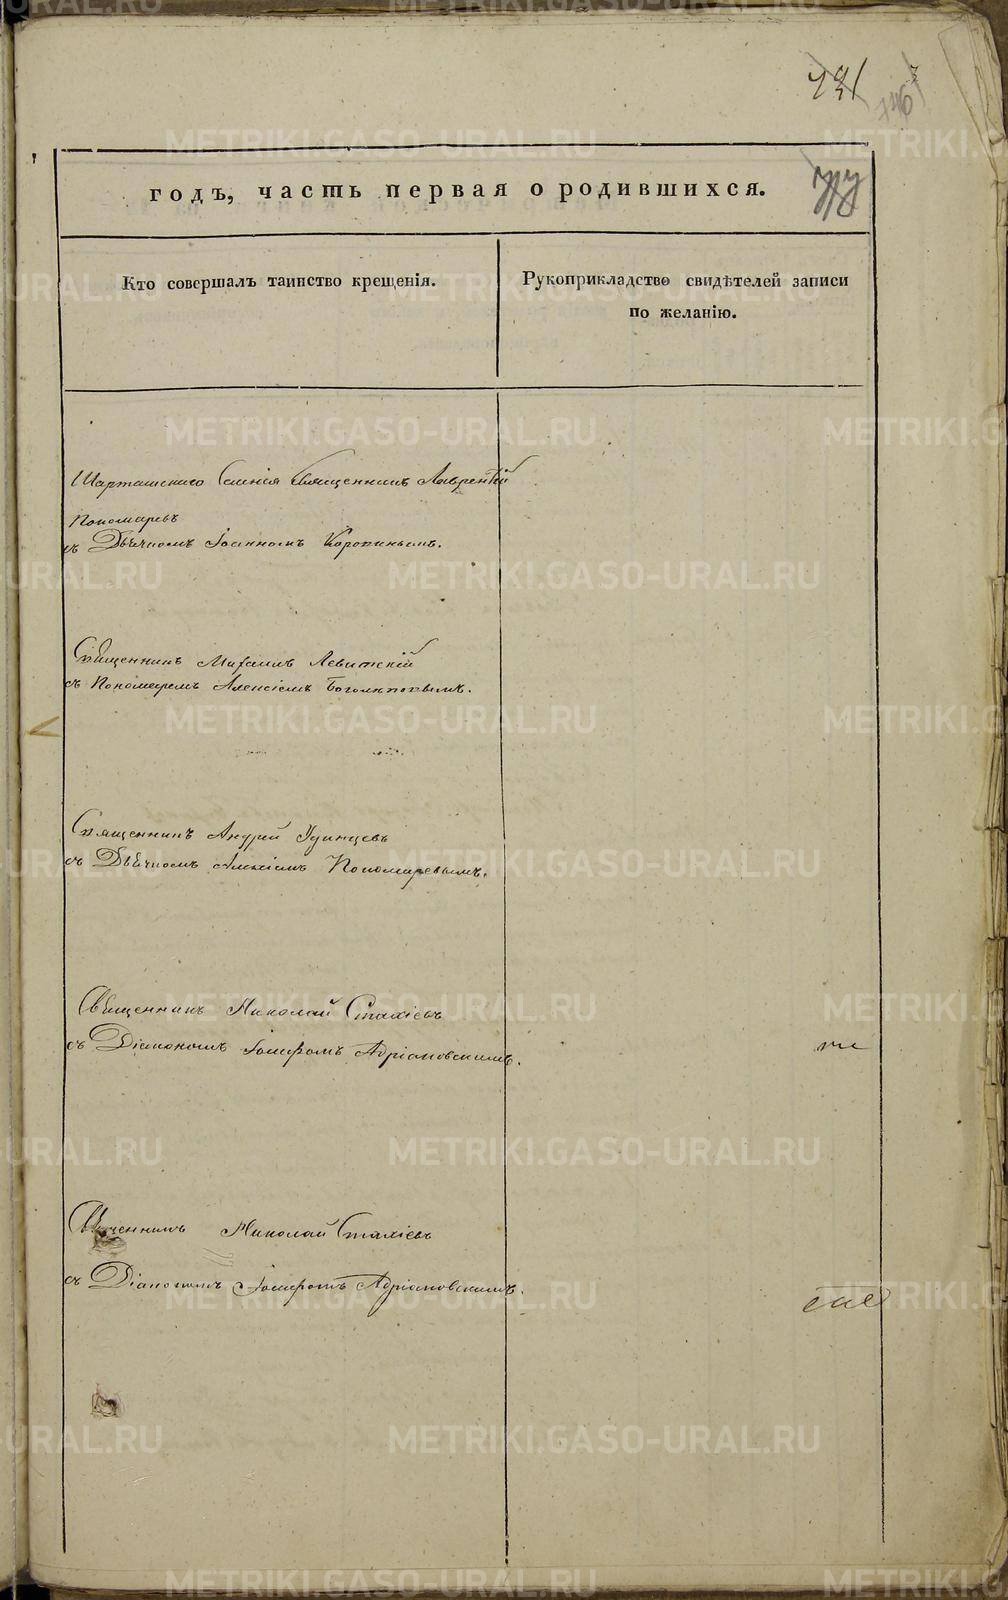 годъ, часть первая о родившихся.
Кто совершалъ таинство крещенія.
Рукоприкладство свидѣтелей записи
по желанію.
Шарташскаго Селенія Священникъ Лаврентій
Пономаревъ
съ Дьячкомъ Іоанномъ Коровинымъ.
Священникъ Михаилъ Левитскій
съ Пономаремъ Алексіемъ Боголюповымъ.
Священникъ Андрей Удинцевъ
съ Дьячкомъ Алексіемъ Пономаревымъ.
Священникъ Николай Стахіевъ
съ Діакономъ Іосифомъ Адріановскимъ.
Священникъ Николай Стахіевъ
съ Діакономъ Іосифомъ Адріановскимъ.
METRIKI.GASO-URAL.RU